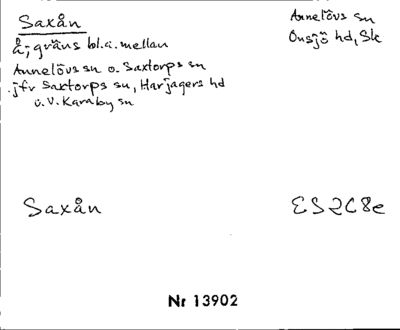 Saxån
Annelövs sn
Onsjö hd, Sk
å; gräns bl.a. mellan
Annelövs sn o. Saxtorps sn
jfr Saxtorps sn, Harjagers hd
o. V. Karaby sn
Saxån
ES2C8e
Nr 13902